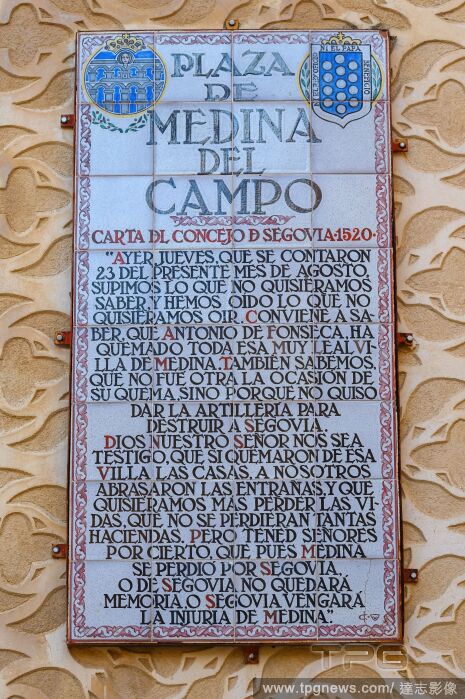 PLAZA
DE
MEDINA
DEL
CAMPO
CARTA DL CONCEJO D SEGOVIA·1520·
"AYER, JUEVES, QUE SE CONTARON
23 DEL PRESENTE MES DE AGOSTO,
SUPIMOS LO QUE NO QUISIÉRAMOS
SABER, Y HEMOS OIDO LO QUE NO
QUISIÉRAMOS OIR. CONVIENE A SA-
BER, QUE ANTONIO DE FONSECA, HA
QUEMADO TODA ESA MUY LEAL VI-
LLA DE MEDINA. TAMBIÉN SABEMOS,
QUE NO FUE OTRA LA OCASIÓN DE
SU QUEMA, SINO PORQUE NO QUISO
DAR LA ARTILLERÍA PARA
DESTRUIR A SEGOVIA.
DIOS NUESTRO SEÑOR NOS SEA
TESTIGO, QUE SI QUEMARON DE ESA
VILLA LAS CASAS, A NOSOTROS
ABRASARON LAS ENTRAÑAS, Y QUE
QUISIÉRAMOS MÁS PERDER LAS VI-
DAS, QUE NO SE PERDIERAN TANTAS
HACIENDAS. PERO TENED SEÑORES
POR CIERTO, QUE PUES MEDINA
SE PERDIO POR SEGOVIA,
O DE SEGOVIA NO QUEDARÁ
MEMORIA, O SEGOVIA VENGARÁ
LA INJURIA DE MEDINA".
TPG
www.tpgnews.com/ 達志影像